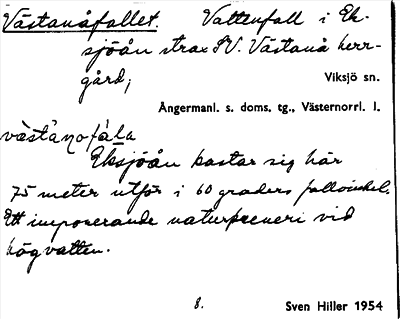 Västanåfallet. Vattenfall i Ek-
sjöån strax SV. Västanå herr-
gård;
Viksjö sn.
Ångermanl. s. doms. tg., Västernorrl. l.
Eksjöån kastar sig här
75 meter utför i 60 graders fallvinkel.
Ett imponerande naturskeneri vid
högvatten.
8.
Sven Hiller 1954